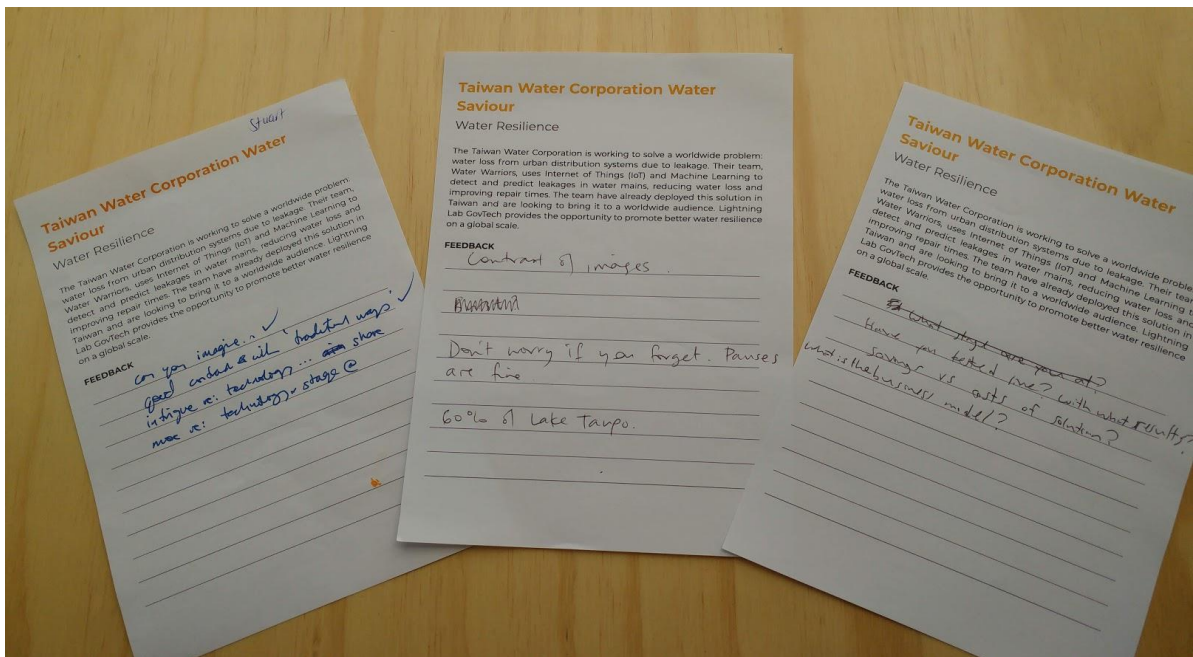 Stuart
Taiwan Water Corporation Water
Saviour
Water Resilience
The Taiwan Water Corporation is working to solve a worldwide problem:
water loss from urban distribution systems due to leakage. Their team,
Water Warriors, uses Internet of Things (IoT) and Machine Learning to
detect and predict leakages in water mains, reducing water loss and
improving repair times. The team have already deployed this solution in
Taiwan and are looking to bring it to a worldwide audience. Lightning
Lab GovTech provides the opportunity to promote better water resilience
on a global scale.
FEEDBACK
can you imagine... ✓
good contrast with 'traditional ways' ✓
intrigue re: technology... share
more re: technology stage @
Taiwan Water Corporation Water
Saviour
Water Resilience
The Taiwan Water Corporation is working to solve a worldwide problem:
water loss from urban distribution systems due to leakage. Their team,
Water Warriors, uses Internet of Things (IoT) and Machine Learning to
detect and predict leakages in water mains, reducing water loss and
improving repair times. The team have already deployed this solution in
Taiwan and are looking to bring it to a worldwide audience. Lightning
Lab GovTech provides the opportunity to promote better water resilience
on a global scale.
FEEDBACK
Contrast of images.
Don't worry if you forget. Pauses
are fine.
60% of Lake Taupo.
Taiwan Water Corporation Water
Saviour
Water Resilience
The Taiwan Water Corporation is working to solve a worldwide proble
water loss from urban distribution systems due to leakage. Their tea
Water Warriors, uses Internet of Things (IoT) and Machine Learning t
detect and predict leakages in water mains, reducing water loss and
improving repair times. The team have already deployed this solution in
Taiwan and are looking to bring it to a worldwide audience. Lightning
Lab GovTech provides the opportunity to promote better water resilience
on a global scale.
FEEDBACK
What stage are you at?
Have you tested me? with what results?
Savings vs costs of solution?
what is the business model?